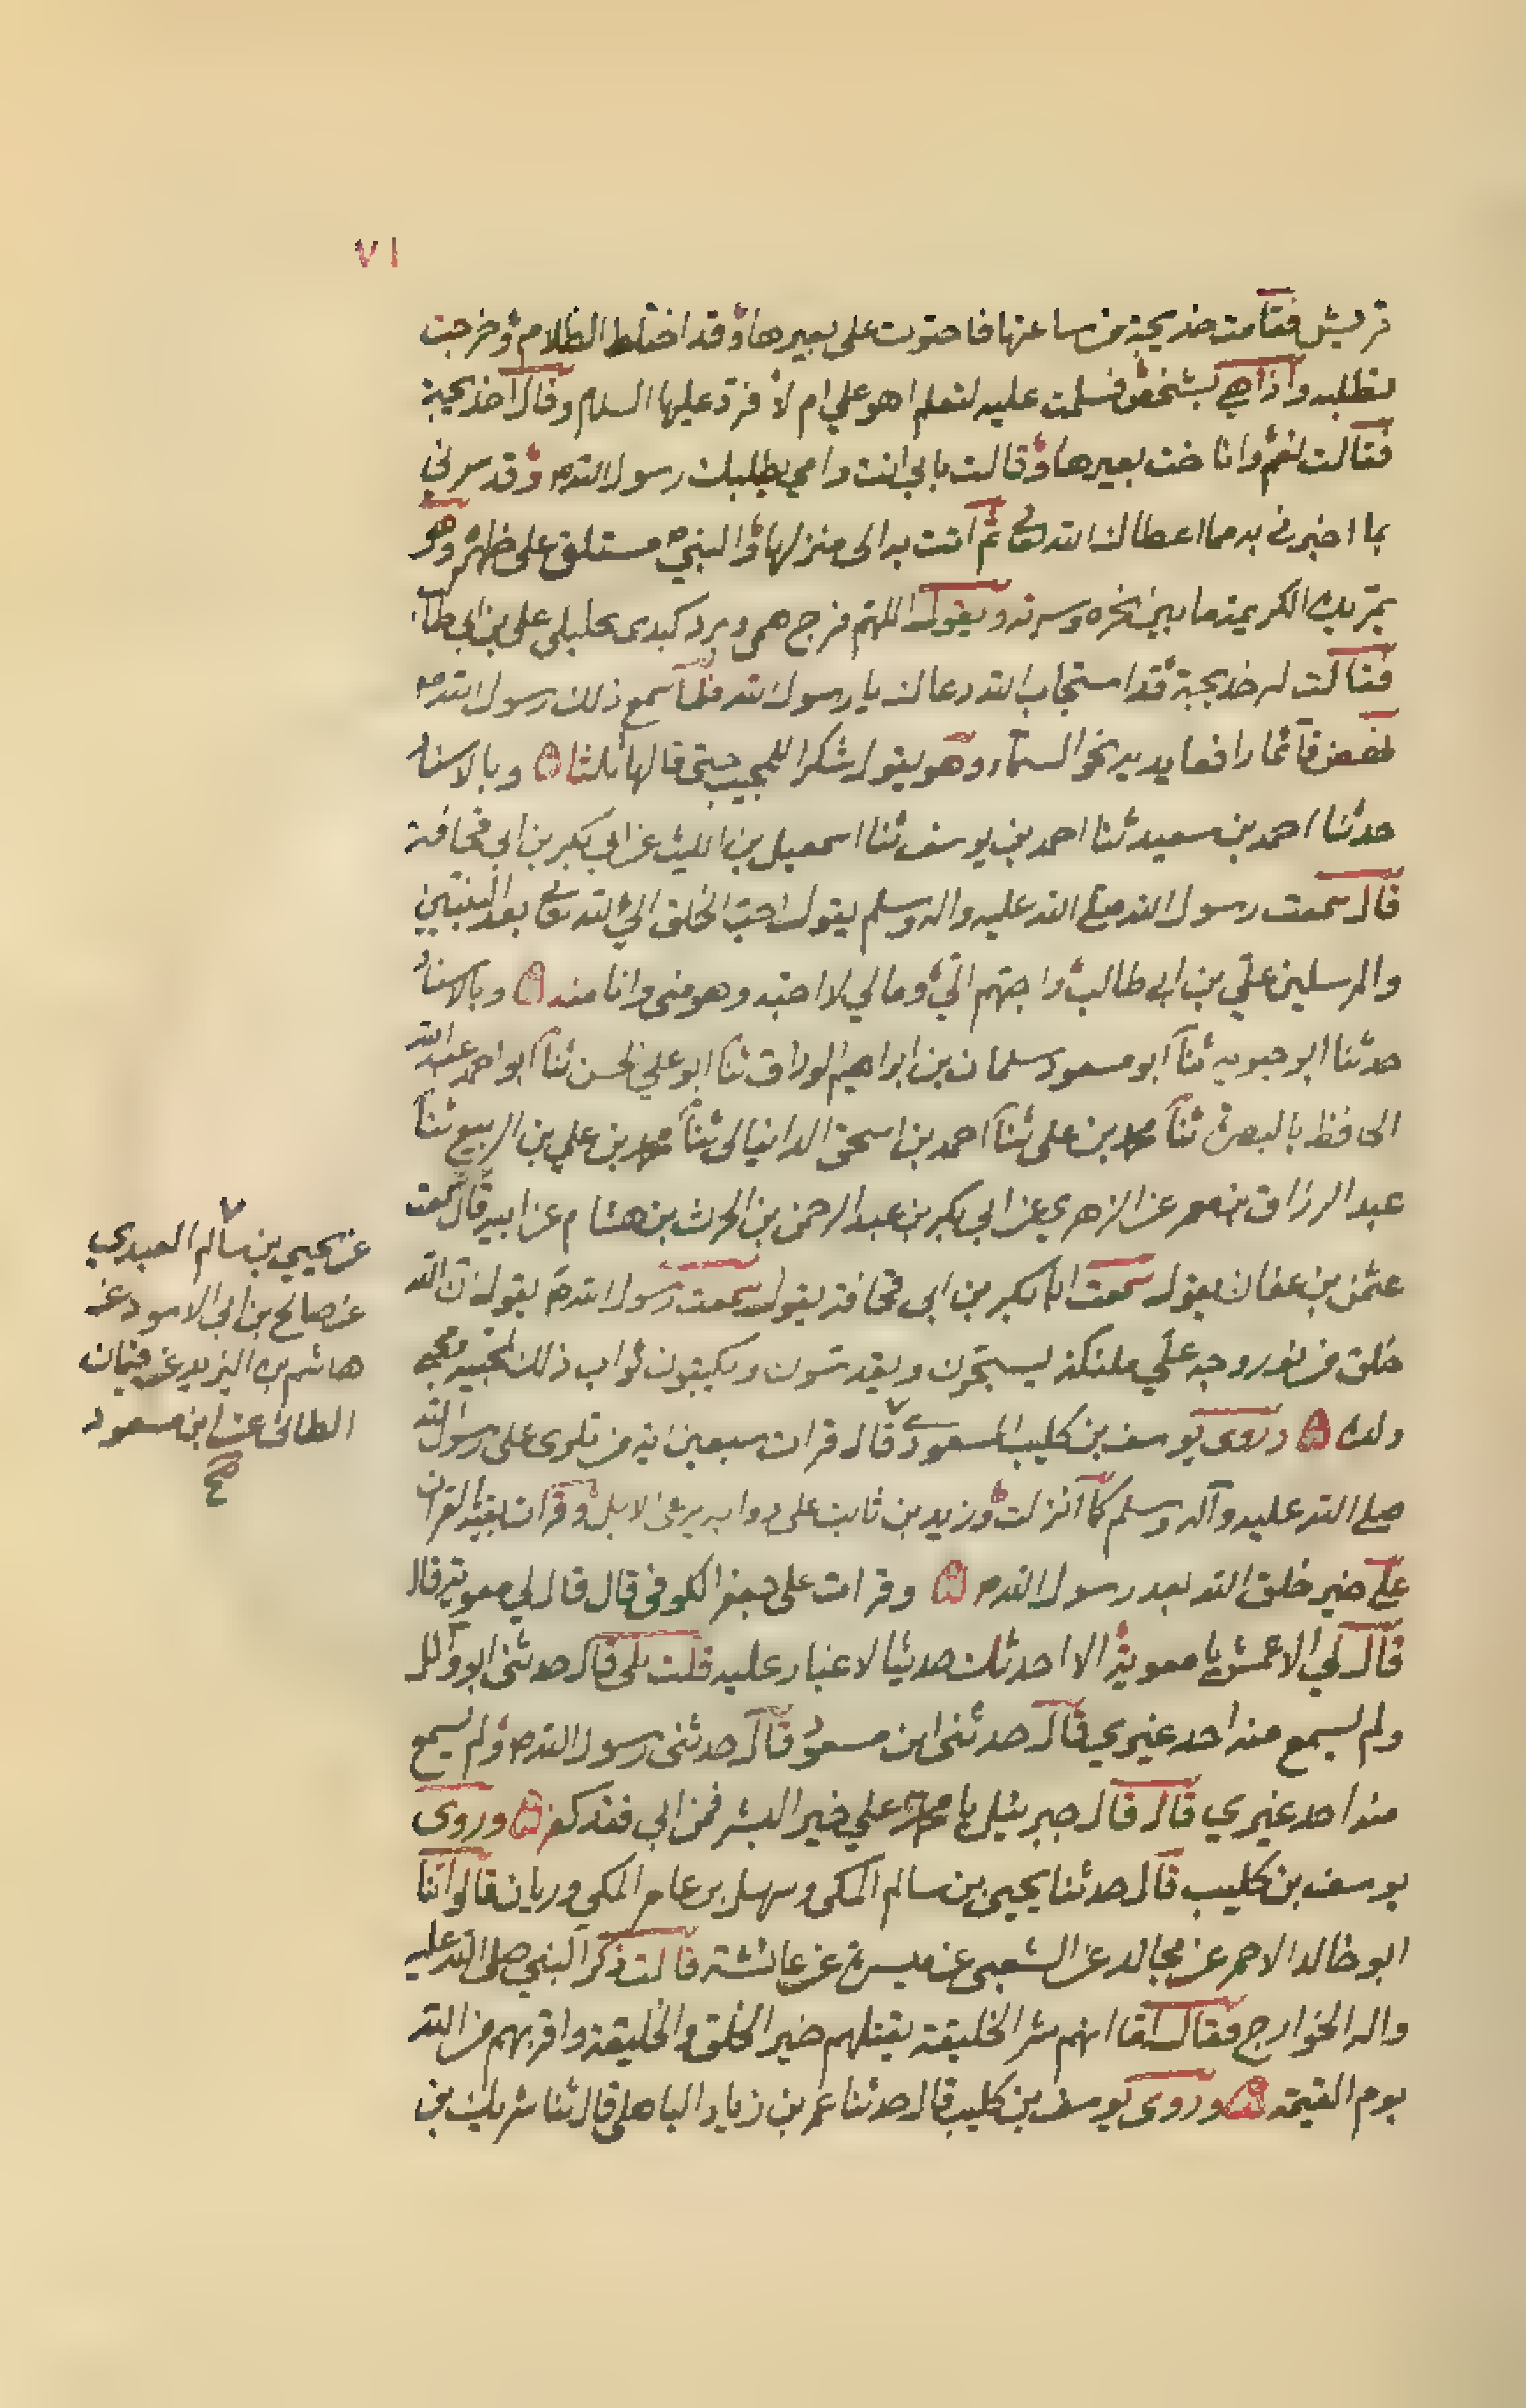 ٧١
قريش فقامت خديجة من ساعتها فاحتوت على بعيرها وقد اختلط الظلام وخرجت
لتطلبه واذا هي بشخص فسلمت عليه لتعلم اهو علي ام لا فرد عليها السلام وقال اخديجة
فقالت نعم واناخت بعيرها وقالت بابي انت وامي يطلبك رسول الله ص وقد سرني
بما اخبرني به مما اعطاك الله تعالى ثم اتت به الى منزلها والنبي ص مستلق على ظهره وهو
يمر يده الكريمة ما بين نحره وسرته ويقول اللهم فرج همي وبرد كبدي بخليلي علي بن ابي طا
فقالت له خديجة قد استجاب الله دعاك يا رسول الله فلما سمع ذلك رسول الله ص
نهض قائما رافعا يديه نحو السماء وهو يقول شكرا للمجيب حتى قالها ثلثا وبالاسناد
حدثنا احمد بن سعيد ثنا احمد بن يوسف ثنا اسمعيل بن الليث عن ابي بكر بن ابي قحافة
قال سمعت رسول الله صلى الله عليه واله وسلم يقول احب الخلق الى الله تعالى بعد النبيين
والمرسلين علي بن ابي طالب واحبهم الي وما لي لا احبه وهو مني وانا منه وبالاسناد
حدثنا ابو حيويه ثنا ابو مسعود سلمان بن ابراهيم الوراق ثنا ابو علي الحسن ثنا ابو احمد عبد الله
الحافظ بالبصرة ثنا محمد بن علي ثنا احمد بن اسحق الدانيالي ثنا محمد بن علي بن الربيع ثنا
عبد الرزاق عن معمر عن الزهري عن ابي بكر بن عبد الرحمن بن الحرث بن هشام عن ابيه قال سمعت
عثمن بن عفان يقول سمعت ابا بكر بن ابي قحافة يقول سمعت رسول الله ص يقول ان الله
خلق من نور وجه علي ملئكة يسبحون ويقدسون ويكتبون ثواب ذلك لمحبيه ومحبي
ولده وروى يوسف بن كليب المسعودي قال قرات سبعين اية من تلوى على رسول الله
صلى الله عليه وآله وسلم كما انزلت وزيد بن ثابت على دوابه يرعى الابل وقرات بقية القران
على خير خلق الله بعد رسول الله ص وقرات على جعفر الكوفي قال قال لي معوية قال
قال لي الاعمش يا معوية الا احدثك حديثا لا غبار عليه قلت بلى قال حدثني ابو وائل
ولم يسمع منه احد غيري قال حدثني ابن مسعود قال حدثني رسول الله ص ولم يسمع
منه احد غيري قال قال جبرئيل يا محمد علي خير البشر فمن ابى فقد كفر وروى
يوسف بن كليب قال حدثنا يحيى بن سالم المكي وسهل بن عامر المكي وريان قالوا ثنا
ابو خالد الاحمر عن مجالد عن الشعبي عن ميسرة عن عائشة قالت ذكر النبي صلى الله عليه
واله الخوارج فقال لقا انهم شر الخليقة يقتلهم خير الخلق والخليقة واقربهم من الله
يوم القيمة وروى يوسف بن كليب قال حدثنا عمر بن زياد الباهلي قال ثنا شريك بن
عن يحيى بن سالم العبدي
عن صالح بن ابي الاسود عن
هاشم بن اليزيد عن فتيان
الطائي عن ابن مسعود
صح